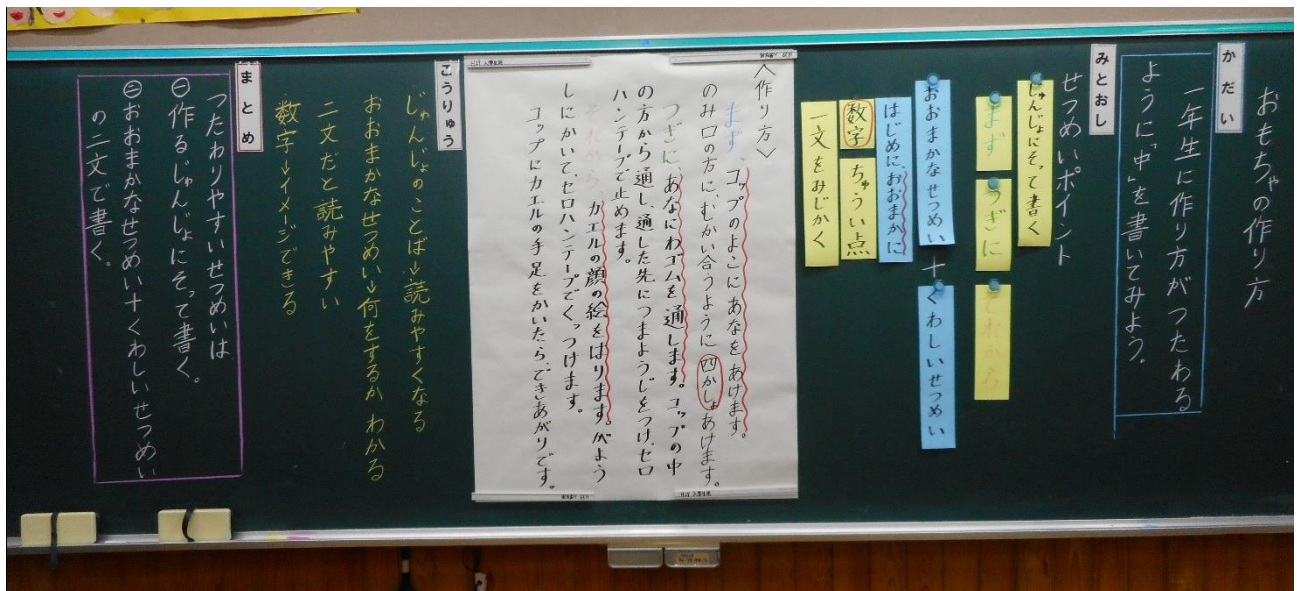 おもちゃの作り方
かだい
一年生に作り方がつたわる
ように「中」を書いてみよう。
みとおし
せつめいポイント
じゅんじょにそって書く
まず
つぎに
それから
おおまかなせつめい
+
くわしいせつめい
はじめに、おおまかに
数字
ちゅうい点
一文をみじかく
〈作り方〉
まず、コップのよこにあなをあけます。
のみ口の方に、むかい合うように四かしょあけます。
つぎに、あなにわゴムを通します。コップの中
の方から通し、通した先につまようじをつけ、セロ
ハンテープで止めます。
それから、カエルの顔の絵をはります。がよう
しにかいて、セロハンテープでくっつけます。
コップにカエルの手足をかいたら、できあがりです。
こうりゅう
じゅんじょのことば→読みやすくなる
おおまかなせつめい→何をするか わかる
二文だと読みやすい
数字→イメージできる
まとめ
つたわりやすいせつめいは
㊀作るじゅんじょにそって書く。
㊁おおまかなせつめい+くわしいせつめい
の二文で書く。